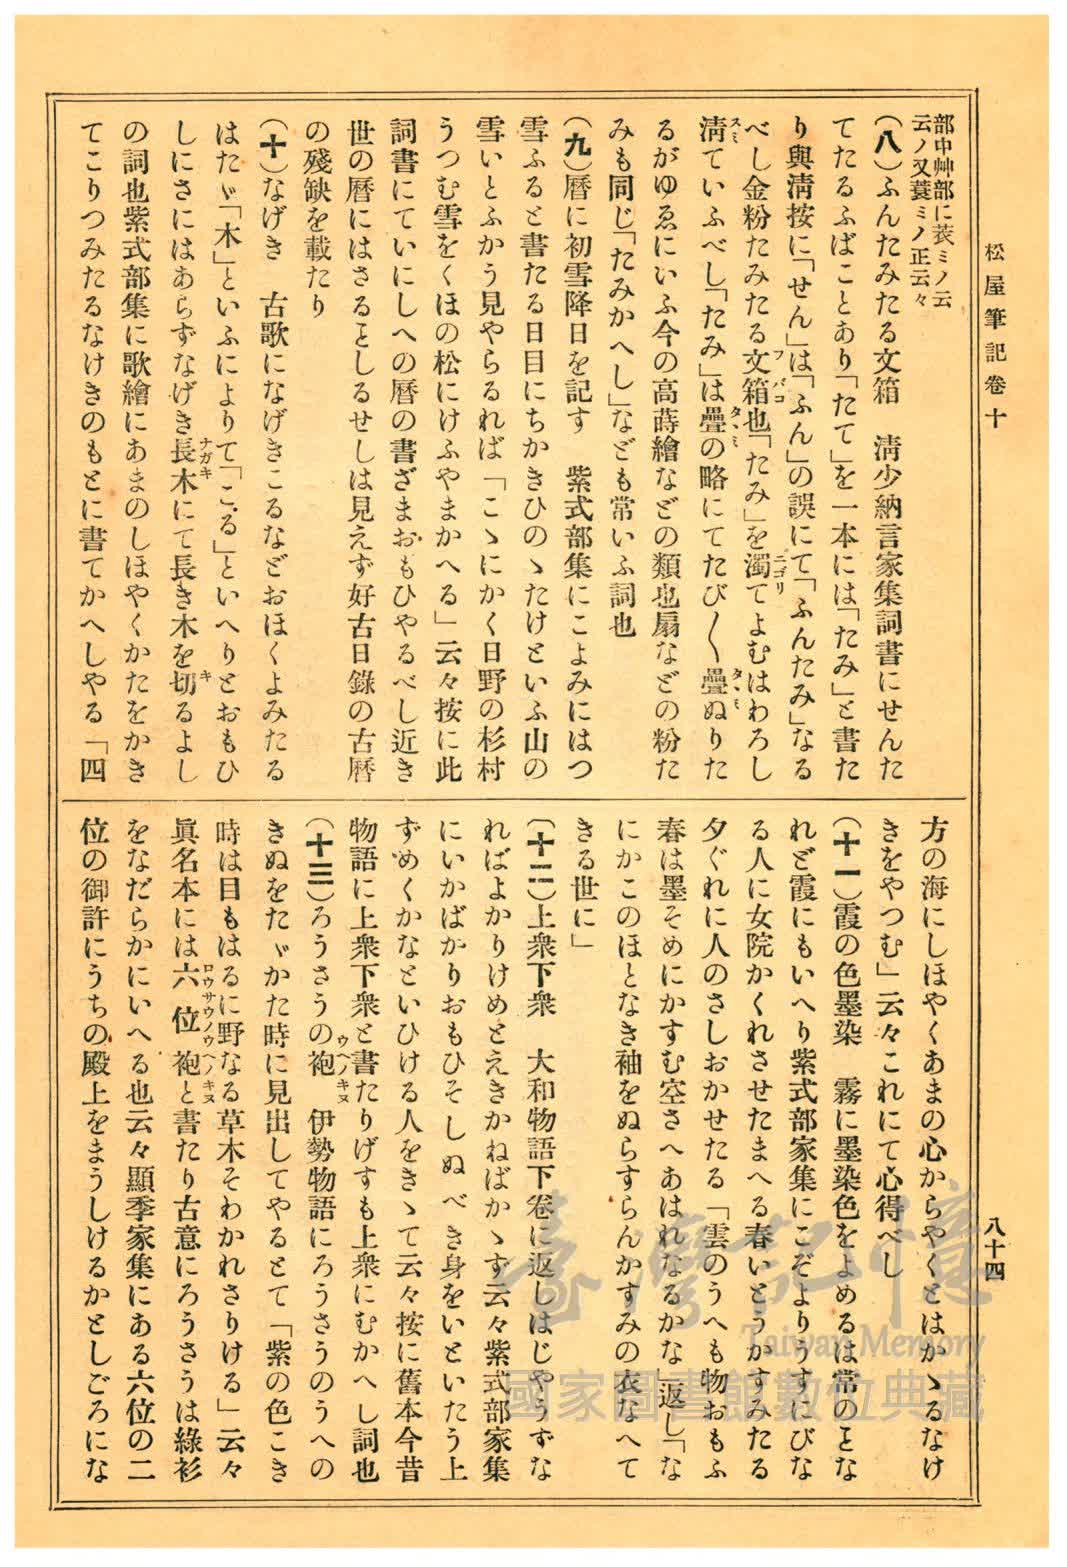 松屋筆記卷十
八十四
部中艸部に蓑ミノ云
云ノ又蓑ミノ正云々
(八)ふんたみたる文箱　淸少納言家集詞書にせんた
てたるふばことあり「たて」を一本には「たみ」と書た
り與淸按に「せん」は「ふん」の誤にて「ふんたみ」なる
べし金粉たみたる文箱也「たみ」を濁てよむはわろし
淸ていふべし「たみ」は疊の略にてたび〱疊ぬりた
るがゆゑにいふ今の高蒔繪などの類也扇などの粉た
みも同じ「たみかへし」なども常いふ詞也
(九)曆に初雪降日を記す　紫式部集にこよみにはつ
雪ふると書たる日目にちかきひのゝたけといふ山の
雪いとふかう見やらるれば「こゝにかく日野の杉村
うつむ雪をくほの松にけふやまかへる」云々按に此
詞書にていにしへの曆の書ざまおもひやるべし近き
世の曆にはさることしるせしは見えず好古日錄の古曆
の殘缺を載たり
(十)なげき　古歌になげきこるなどおほくよみたる
はたゞ「木」といふによりて「こる」といへりとおもひ
しにさにはあらずなげき長木にて長き木を切るよし
の詞也紫式部集に歌繪にあまのしほやくかたをかき
てこりつみたるなけきのもとに書てかへしやる「四
方の海にしほやくあまの心からやくとはかゝるなけ
きをやつむ」云々これにて心得べし
(十一)霞の色墨染　霧に墨染色をよめるは常のことな
れど霞にもいへり紫式部家集にこぞよりうすにびな
る人に女院かくれさせたまへる春いとうかすみたる
夕ぐれに人のさしおかせたる「雲のうへも物おもふ
春は墨そめにかすむ空さへあはれなるかな」返し「な
にかこのほとなき袖をぬらすらんかすみの衣なへて
きる世に」
(十二)上衆下衆　大和物語下卷に返しはじやうずな
ればよかりけめとえきかねばかゝず云々紫式部家集
にいかばかりおもひそしぬべき身をいといたう上
ずめくかなといひける人をきゝて云々按に舊本今昔
物語に上衆下衆と書たりげすも上衆にむかへし詞也
(十三)ろうさうの袍　伊勢物語にろうさうのうへの
きぬをたゞかた時に見出してやるとて「紫の色こき
時は目もはるに野なる草木そわかれさりける」云々
眞名本には六位袍と書たり古意にろうさうは綠衫
をなだらかにいへる也云々顯季家集にある六位の二
位の御許にうちの殿上をまうしけるかとしごろにな
臺灣記憶
Taiwan Memory
國家圖書館數位典藏